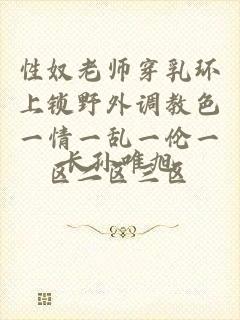 性奴老师穿乳环
上锁野外调教色
一情一乱一伦一
区二区三区
长孙唯旭